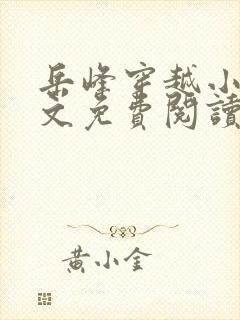 岳峰穿越小
文免費閱讀
黃小金